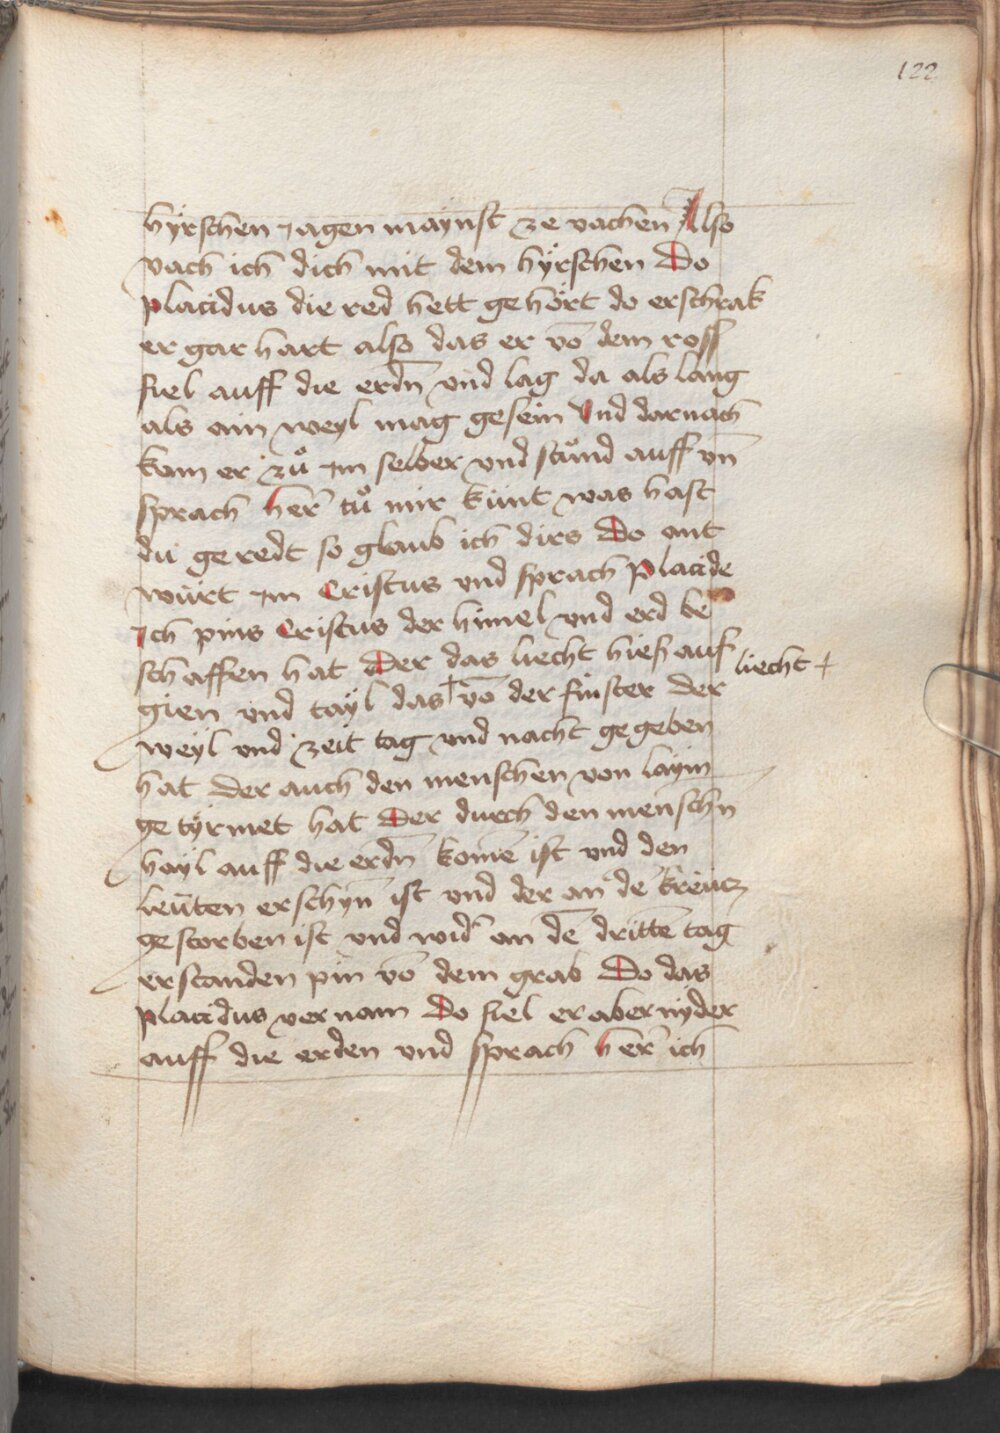 122
hÿrschen jagen maÿnst ze vachen Also
vach ich dich mit dem hÿrschen Do
placidus die red hett gehört do erschrak
er gar hart also das er vō dem ross
fiel auff die erdn̄ vnd lag da als lang
als ain weyl mag gesein Vnd darnach
kam er zů im selber vnd stůnd auff vn̄
sprach her̄ tů mir künt was hast
du geredt so glaub ich dirs Do ant
würt im Cristus vnd sprach Placide
Ich pins Cristus der himel vnd erd be
schaffen hat Der das liecht hieß auf
gien vnd tayl das + vō der finster Der
liecht +
weyl vnd zeit tag vnd nacht gegeben
hat Der auch den menschen von laym
getÿrmet hat Der durch den menschn
hayl auff die erdn̄ komē ist vnd den
leüten erschyn̄ ist vnd der an dē kreücz
gestorben ist vnd wid' an dē drittē tag
erstanden pin vō dem grab Do das
placidus vernam Do fiel er aber nÿder
auff die erden vnd sprach her̄ ich